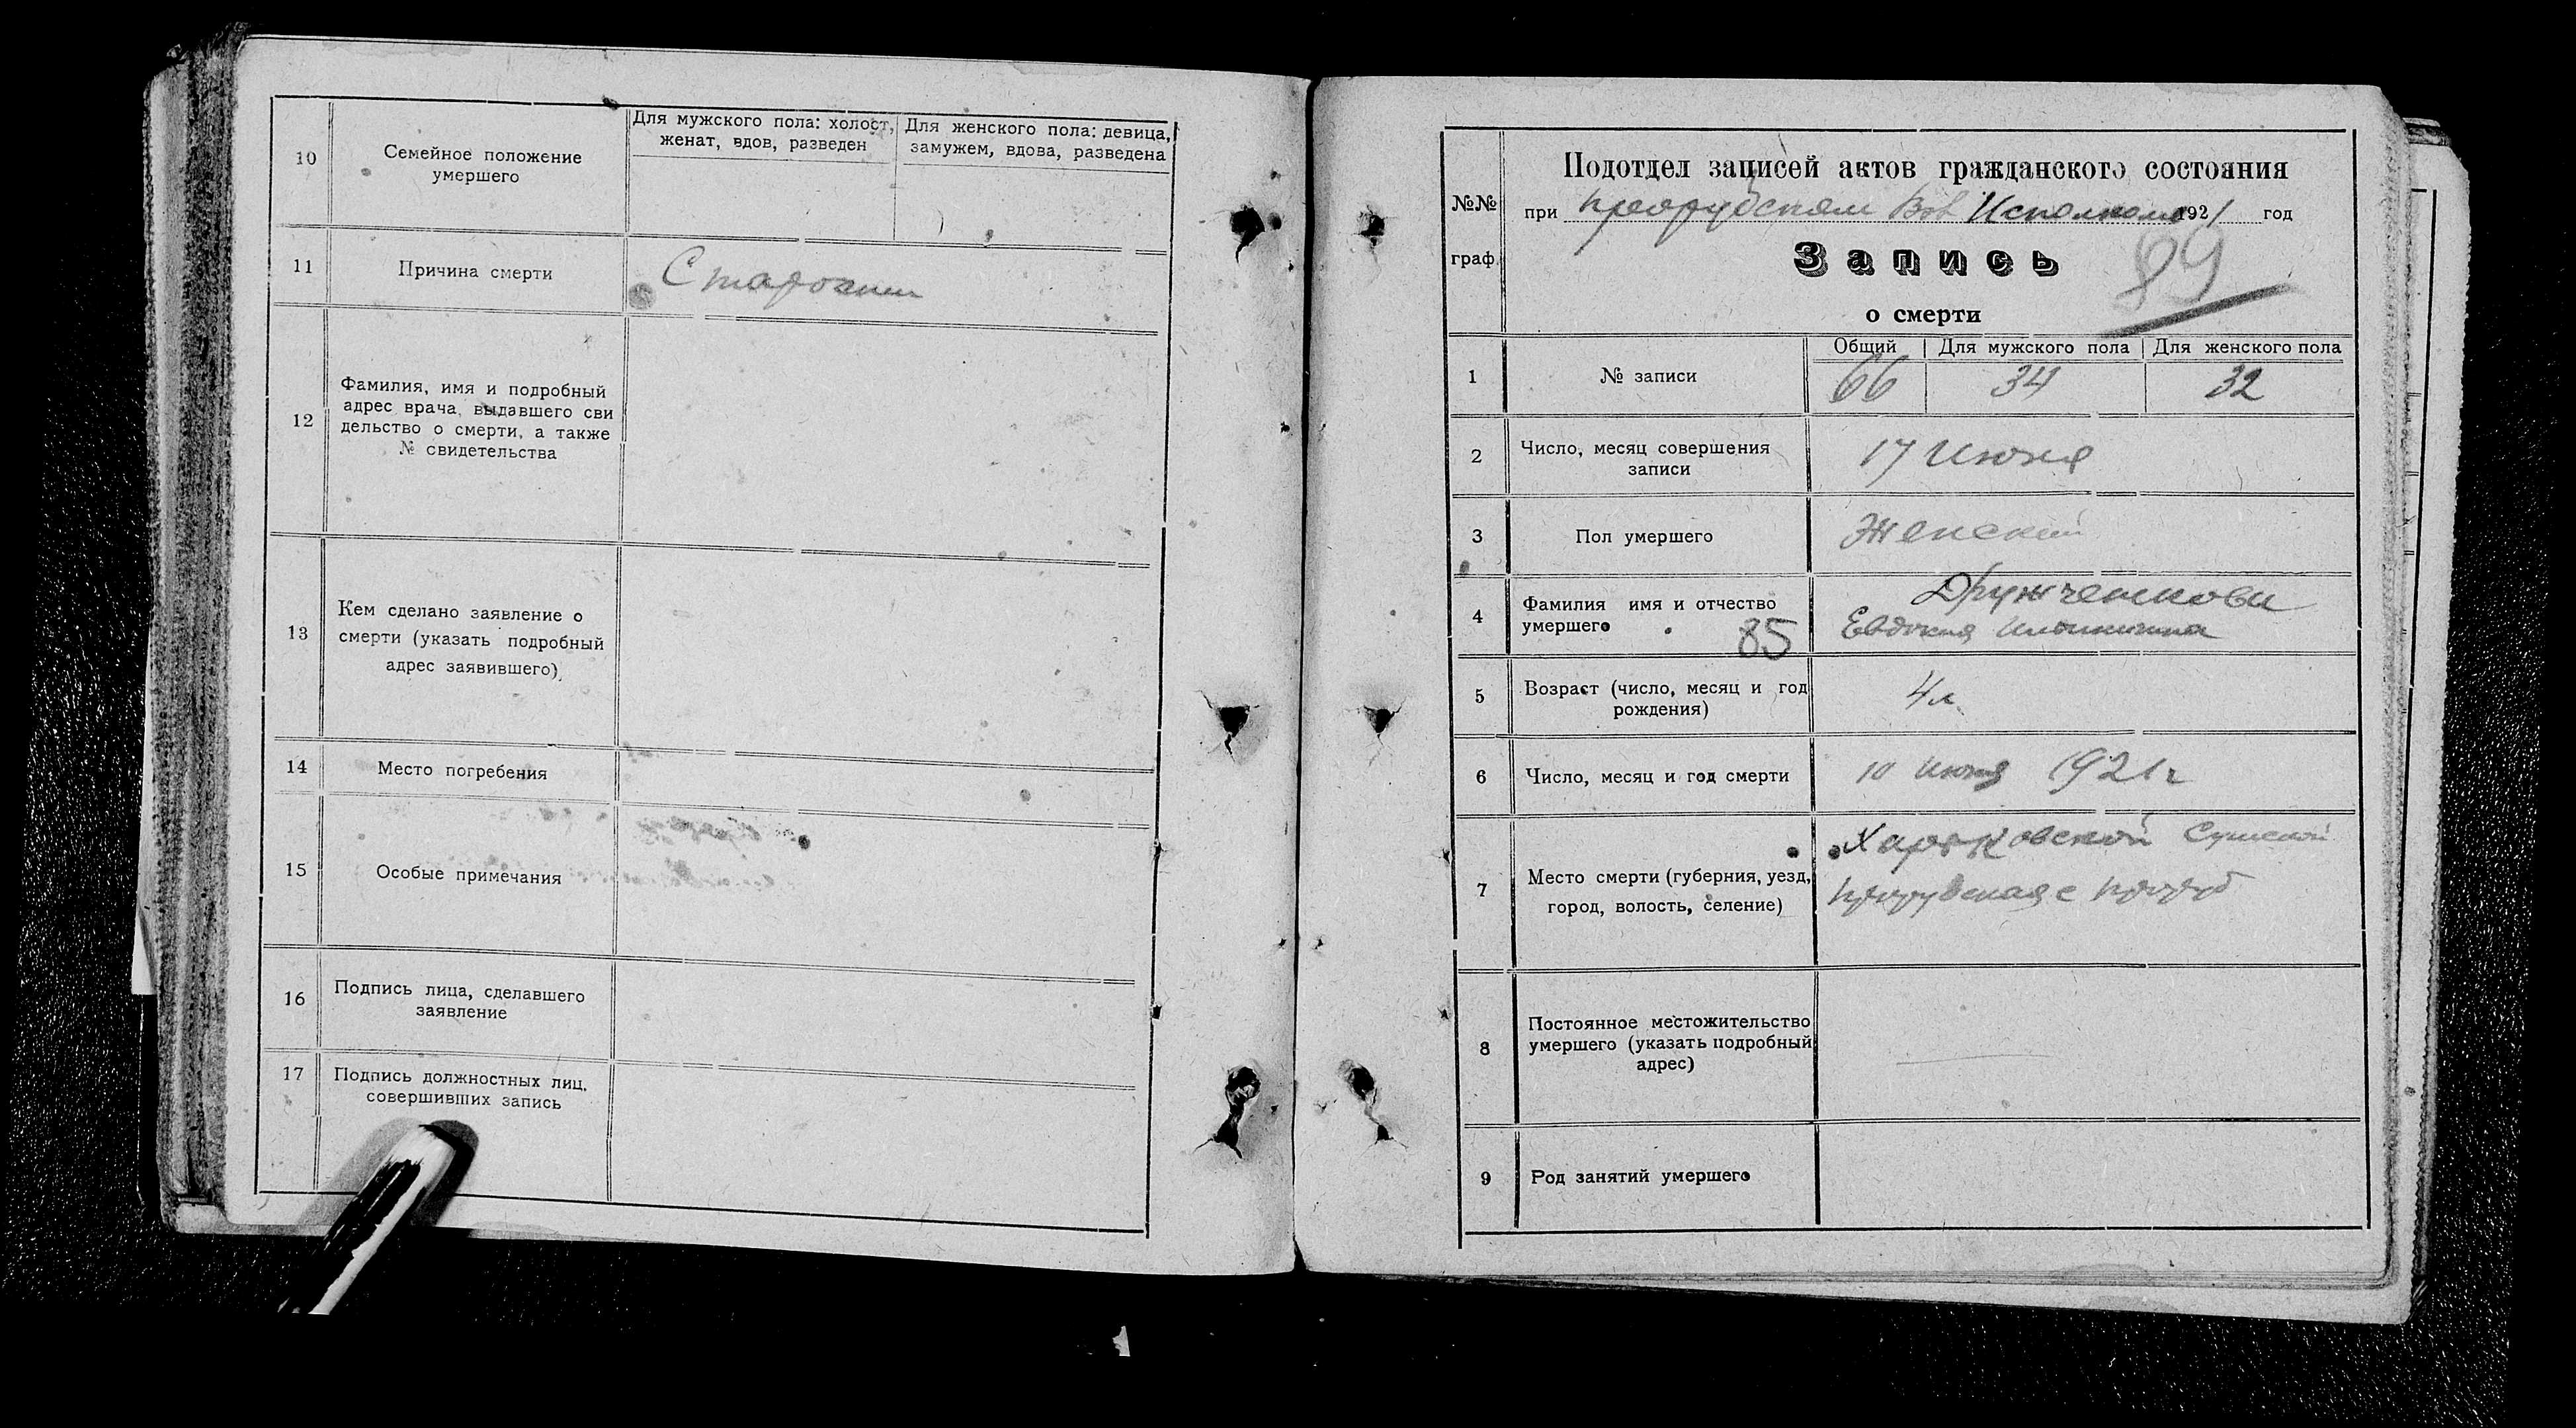 10
Семейное положение
умершего
Для мужского пола: холост,
женат, вдов, разведен
Для женского пола: девица,
замужем, вдова, разведена
11
Причина смерти
12
Фамилия, имя и подробный
адрес врача, выдавшего сви
дельство о смерти, а также
№ свидетельства
13
Кем сделано заявление о
смерти (указать подробный
адрес заявившего)
14
Место погребения
15
Особые примечания
16
Подпись лица, сделавшего
заявление
17
Подпись должностных лиц,
совершивших запись
№№
граф.
Подотдел записей актов гражданского состояния
при Исполкоме 1921 год
Запись
89
о смерти
1
№ записи
Общий
Для мужского пола
Для женского пола
66
34
32
2
Число, месяц совершения
записи
17 Июня
3
Пол умершего
Женский
4
Фамилия имя и отчество
умершего
85
Евдокия
5
Возраст (число, месяц и год
рождения)
4 л
6
Число, месяц и год смерти
10 Июня 1921 г
7
Место смерти (губерния, уезд,
город, волость, селение)
Харьковской Сумской
8
Постоянное местожительство
умершего (указать подробный
адрес)
9
Род занятий умершего